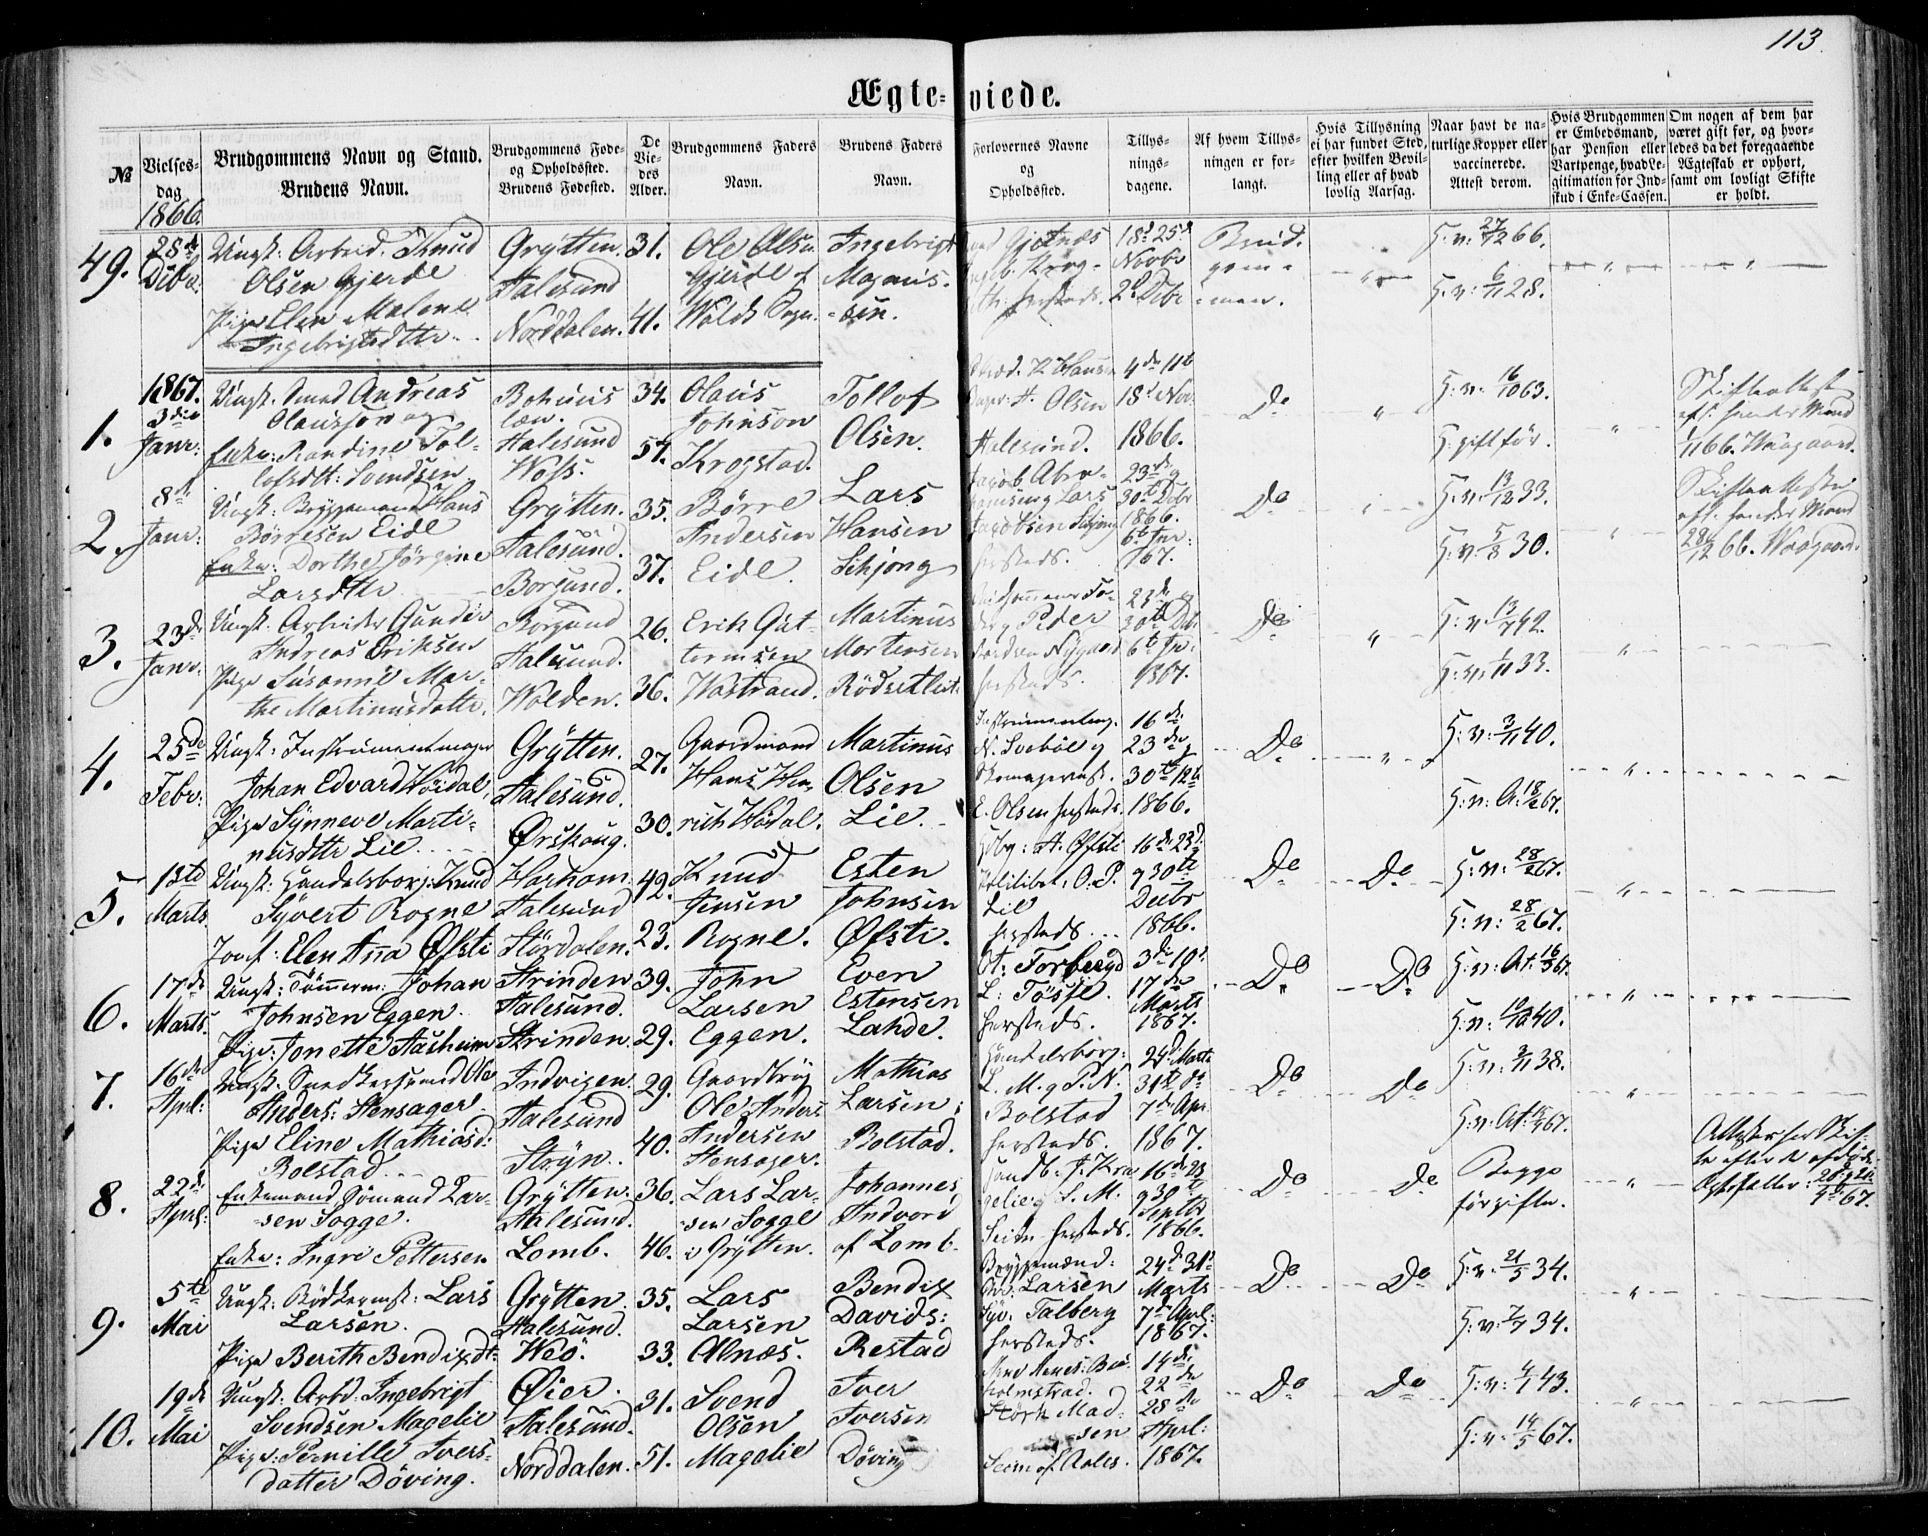 113.
Ægte-viede.
№
Vielses-dag
Brudgommens Navn og Stand.
Brudens Navn.
Brudgommens Føde- og Opholdssted.
Brudens Fødested.
De Viedes Alder.
Brudgommens Faders Navn.
Brudens Faders Navn.
Forlovernes Navne og Opholdssted.
Tillysningsdagene.
Af hvem Tillysningen er forlangt.
Hvis Tillysning ei har fundet Sted, efter hvilken Bevilling eller af hvad lovlig Aarsag.
Naar havt de naturlige Kopper eller vaccinerede. Attest derom.
Hvis Brudgommen er Embedsmand, har Pension eller Vartpenge, hvad Legitimation for Indskud i Enke-Cassen.
Om nogen af dem har været gift før, og hvorledes da det foregaaende Ægteskab er ophørt, samt om lovligt Skifte er holdt.
1866.
49. 28de Decbr:
Ungk: Arbeid. Knud Olsen Gjerde
Pige Elen Malene Ingebrigtsdttr.
Grytten. Aalesund
Norddalen.
31. 41.
Ole Olsen Gjerde af Wolds Sogn.
Ingebrigt Magnus-sen.
18d 25d Novbr 2d Decbr
Brudgommen.
27/12 66.
6/11 28.
1867.
1. 3die Janr:
Ungk. Smed Andreas Olaussen og
Enke: Randine Tollofsdt: Svendsen
Bohuus len. Aalesund
Wols.
34. 57.
Olaus Johnson Krogstad.
Tollof Olsen.
H. Olsen Aalesund.
4de 11te 18d Nov. 1866.
Do
16/10 63.
gift før.
2. 8de Janr:
Ungk. Bryggemand Hans Børresen Eide
Enke: Dorthe Jørgine Larsdttr
Grytten. Aalesund.
Borgund.
35. 37.
Børre Andersen Eide.
Lars Hansen Schjong
Jacob Abrahamsen g Lars Jacobsen Schjong hersteds.
23de g 30te Decbr 1866. 6te Jnr: 1867.
Do
13/12 33.
5/8 30.
3. 23de Janr.
Ungk: Arbeider Gunder Andreas Eriksen
Pige Susanne Marthe Martinusdattr.
Borgund Aalesund.
Wolden.
26. 36.
Erik Guttormsen Wastrand.
Martinus Mortensen Rødsetlist.
g Peder Nygaard hersteds.
23de g 30te Dcbr 6te Jnr. 1867.
Do
13/7 42.
1/11 33.
4. 25de Febr:
Ungk: Instrumentmager Johan Edvard Wodal,
Pige Synneve Martinusdttr Lie.
Grytten. Aalesund.
Ørskoug.
27. 30.
Gaardmand Hans Henrich Wodal.
Martinus Olsen Lie.
Instrumentmg. N. Svebøe g Skomagermst. E. Olsen hersteds.
16de 23de g 30te 12te 1866.
Do
3/11 40.
At. 18/2 67.
5. 13de Marts
Ungk: Handelsborg: Knud Syvert Rogne
Jomf: Elen Anna Øfsti
Harham. Aalesund
Størdalen.
42. 23.
Knud Jensen Rogne.
Esten Johnsen Øfsti.
Hdbg: A: Øfsti O. P. Lie hersteds.
16de 23d g 30te Decbr 1866.
Do Do
28/2 67.
28/2 67.
6. 17de Marts.
Ungk: Tømmerm: Johan Johnsen Eggen.
Pige: Jonette Aasheim
Strinden Aalesund.
Strinden.
39. 29.
John Larsen Eggen.
Even Estensen Lahde.
O: Torberg L: Tøsse. hersteds.
3de 10d 17de Marts 1867.
Do Do
At: 16/3 67.
10/10 40.
7. 16de Aprl:
Ungk: Snedkersvend Ole Anders: Stensager.
Pige Eline Mathiasd: Bolstad
Indvigen. Aalesund
Stryn.
29. 40.
Gaardbrug Ole Anders Andersen Stensager.
Mathias Larsen Bolstad.
Handelsborg: L. M. g P. N. Bolstad hersteds.
24d Marts 31te do 7de Apr 1867.
Do Do
3/11 38.
8. 22de Aprl:
Enkemand, Sømand Larsen Sogge.
Enke: Ingri Pettersen
Grytten. Aalesund.
Lomb.
36. 46.
Lars Larsen Sogge i Grytten.
Johannes Indvord af Lomb.
16de 23 g 30te Septbr 1866.
Do Do
Begge før gifte.
9. 5te Mai
Ungk: Bødkermst: Lars Larsen.
Pige Berith Bendixdt:
Grytten. Aalesund.
Weø.
35. 33.
Lars Larsen Alnæs.
Bendix Davids: Restad
Bryggemænd: Larsen Syv. Talberg hersteds.
24de 31d Marts 7de Aprl: 1867.
Do Do
21/5 34.
2/7 34.
10. 19de Mai
Ungk: Arbd. Ingebrigt Svendsen Magelie
Pige: Pernille Iversdatter Døving.
Øier. Aalesund.
Norddalen.
31. 51.
Svend Olsen Magelie
Iver Iversen Døving
14de 22de 28de Aprl: 1867.
Do Do
4/1 43.
14/5 67.